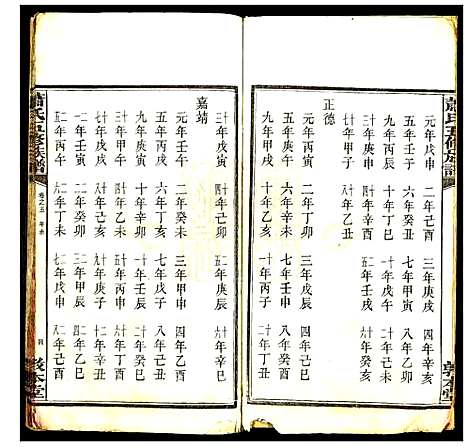 蕭氏五修族譜
元年戊申 二年己酉 三年庚戌 四年辛亥
五年壬子 六年癸丑 七年甲寅 八年乙卯
九年丙辰 十年丁巳 十一年戊午 十二年己未
十三年庚申 十四年辛酉 十五年壬戌 十六年癸亥
十七年甲子 十八年乙丑
正德
元年丙寅 二年丁卯 三年戊辰 四年己巳
五年庚午 六年辛未 七年壬申 八年癸酉
九年甲戌 十年乙亥 十一年丙子 十二年丁丑
十三年戊寅 十四年己卯 十五年庚辰 十六年辛巳
嘉靖
元年壬午 二年癸未 三年甲申 四年乙酉
五年丙戌 六年丁亥 七年戊子 八年己丑
九年庚寅 十年辛卯 十一年壬辰 十二年癸巳
十三年甲午 十四年乙未 十五年丙申 十六年丁酉
十七年戊戌 十八年己亥 十九年庚子 二十年辛丑
廿一年壬寅 廿二年癸卯 廿三年甲辰 廿四年乙巳
廿五年丙午 廿六年丁未 廿七年戊申 廿八年己酉
蕭氏五修族譜 卷之五 年表 四 本堂